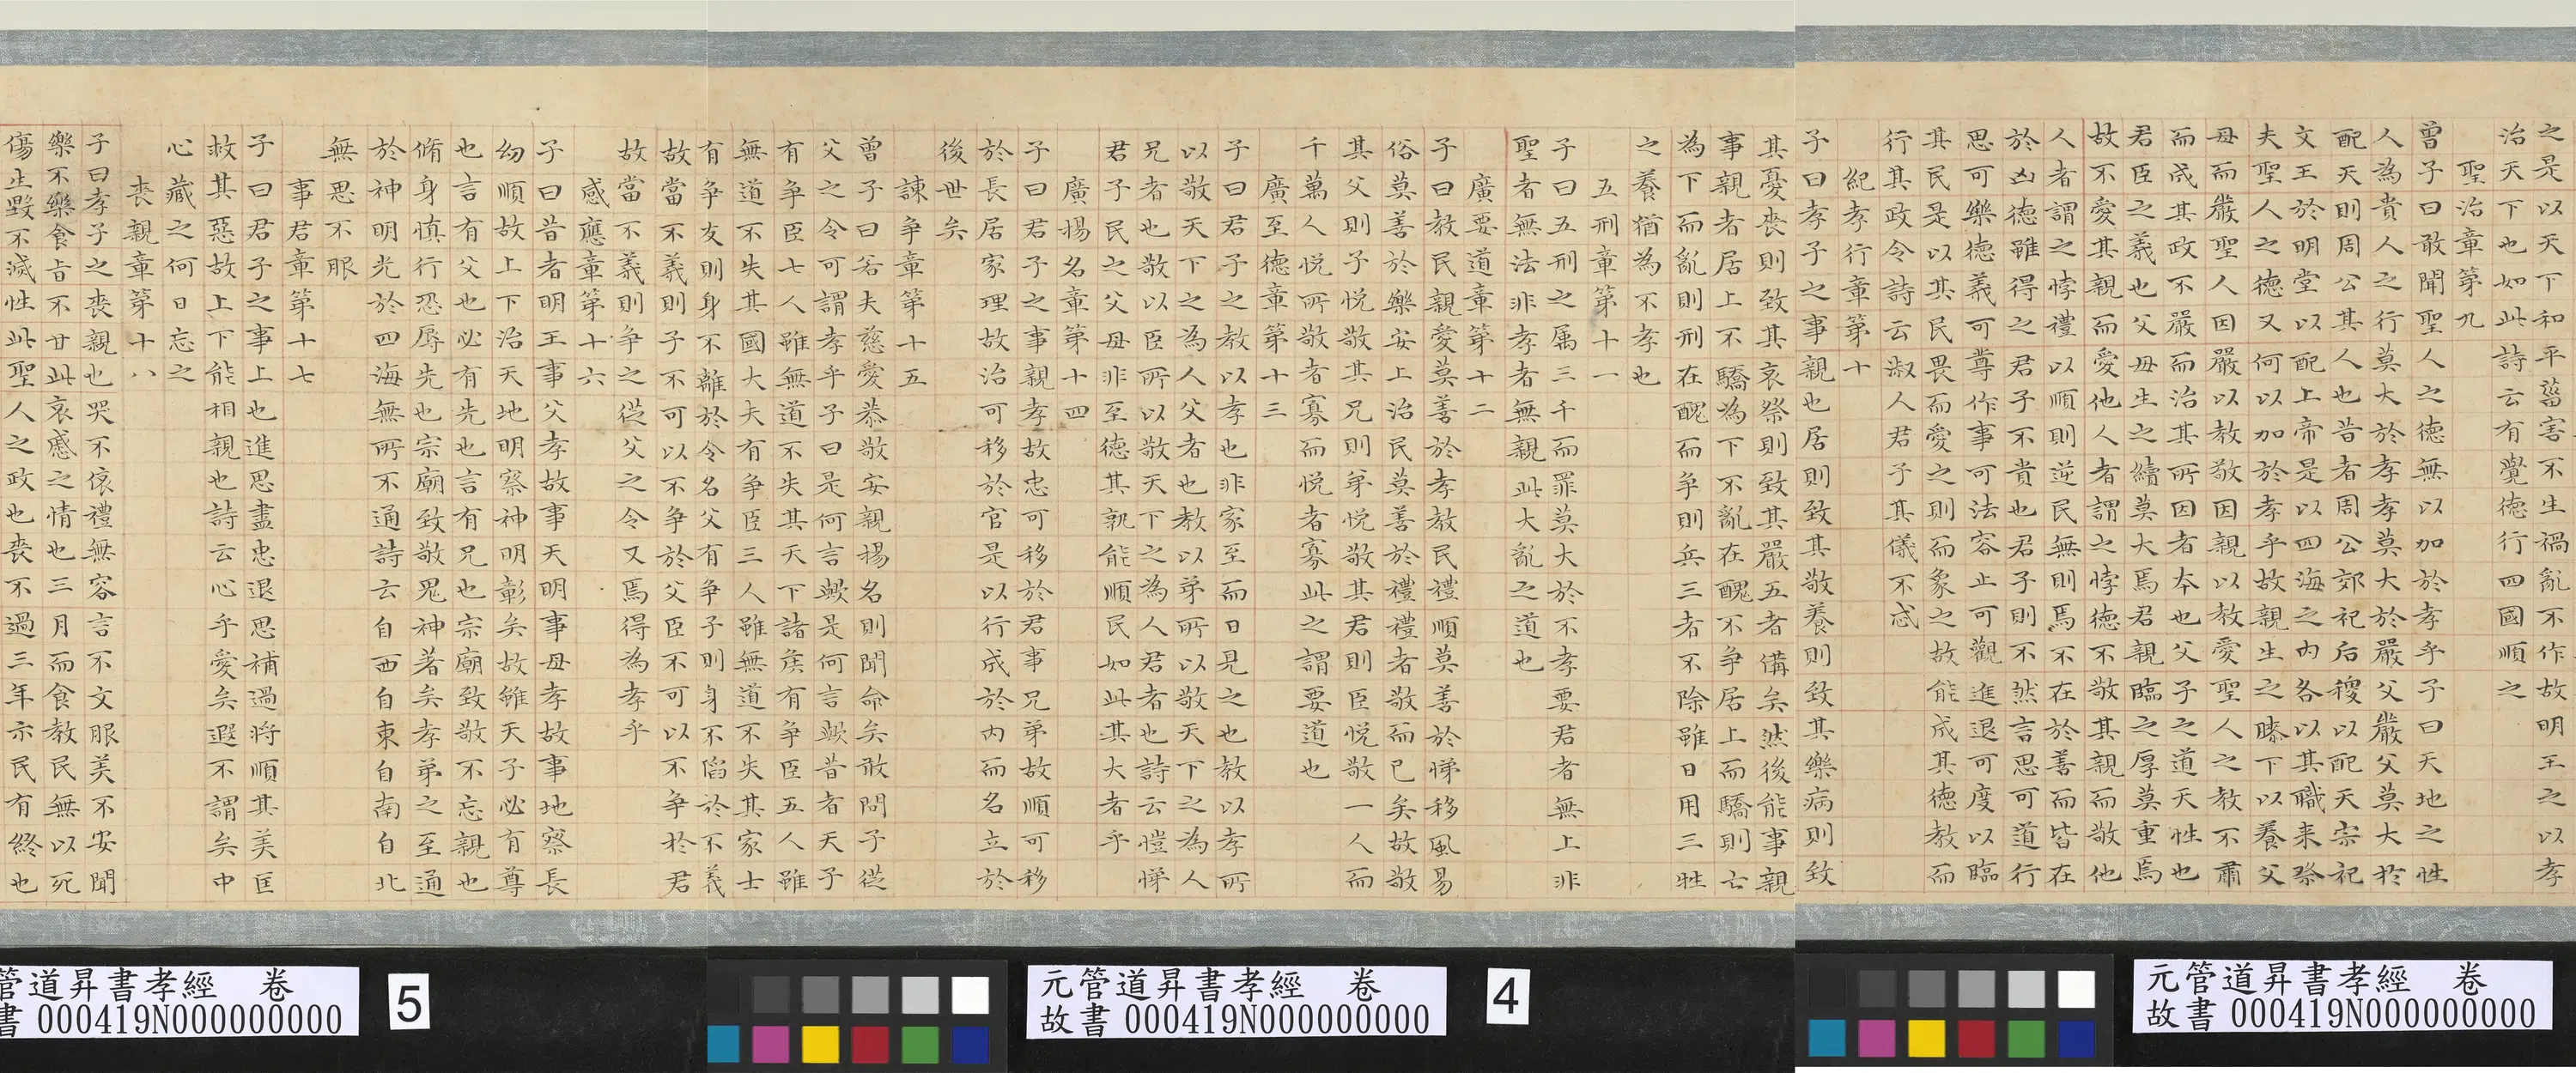 之是以天下和平菑害不生禍亂不作故明王之以孝
治天下也如此詩云有覺德行四國順之
聖治章第九
曾子曰敢聞聖人之德無以加於孝乎子曰天地之性
人為貴人之行莫大於孝孝莫大於嚴父嚴父莫大於
配天則周公其人也昔者周公郊祀后稷以配天宗祀
文王於明堂以配上帝是以四海之內各以其職来祭
夫聖人之德又何以加於孝乎故親生之膝下以養父
母而嚴聖人因嚴以教敬因親以教愛聖人之教不肅
而成其政不嚴而治其所因者本也父子之道天性也
君臣之義也父母生之續莫大焉君親臨之厚莫重焉
故不愛其親而愛他人者謂之悖德不敬其親而敬他
人者謂之悖禮以順則逆民無則焉不在於善而皆在
於凶德雖得之君子不貴也君子則不然言思可道行
思可樂德義可尊作事可法容止可觀進退可度以臨
其民是以其民畏而愛之則而象之故能成其德教而
行其政令詩云淑人君子其儀不忒
紀孝行章第十
子曰孝子之事親也居則致其敬養則致其樂病則致
其憂喪則致其哀祭則致其嚴五者備矣然後能事親
事親者居上不驕為下不亂在醜不争居上而驕則亡
為下而亂則刑在醜而争則兵三者不除雖日用三牲
之養猶為不孝也
五刑章第十一
子曰五刑之属三千而罪莫大於不孝要君者無上非
聖者無法非孝者無親此大亂之道也
廣要道章第十二
子曰教民親愛莫善於孝教民禮順莫善於悌移風易
俗莫善於樂安上治民莫善於禮禮者敬而已矣故敬
其父則子悦敬其兄則弟悦敬其君則臣悦敬一人而
千萬人悦所敬者寡而悦者寡此之謂要道也
廣至德章第十三
子曰君子之教以孝也非家至而日見之也教以孝所
以敬天下之為人父者也教以弟所以敬天下之為人
兄者也敬以臣所以敬天下之為人君者也詩云愷悌
君子民之父母非至德其孰能順民如此其大者乎
廣揚名章第十四
子曰君子之事親孝故忠可移於君事兄弟故順可移
於長居家理故治可移於官是以行成於內而名立於
後世矣
諫争章第十五
曾子曰若夫慈愛恭敬安親揚名則聞命矣敢問子從
父之令可謂孝乎子曰是何言歟是何言歟昔者天子
有争臣七人雖無道不失其天下諸侯有争臣五人雖
無道不失其國大夫有争臣三人雖無道不失其家士
有争友則身不離於令名父有争子則身不陷於不義
故當不義則子不可以不争於父臣不可以不争於君
故當不義則争之從父之令又焉得為孝乎
感應章第十六
子曰昔者明王事父孝故事天明事母孝故事地察長
幼順故上下治天地明察神明彰矣故雖天子必有尊
也言有父也必有先也言有兄也宗廟致敬不忘親也
脩身慎行恐辱先也宗廟致敬鬼神著矣孝弟之至通
於神明光於四海無所不通詩云自西自東自南自北
無思不服
事君章第十七
子曰君子之事上也進思盡忠退思補過將順其美匡
救其惡故上下能相親也詩云心乎愛矣遐不謂矣中
心藏之何日忘之
喪親章第十八
子曰孝子之喪親也哭不偯禮無容言不文服美不安聞
樂不樂食旨不甘此哀慼之情也三月而食教民無以死
傷生毀不滅性此聖人之政也喪不過三年示民有終也
元管道昇書孝經 卷
故書000419N000000000
4
元管道昇書孝經 卷
故書000419N000000000
5
管道昇書孝經 卷
書000419N000000000